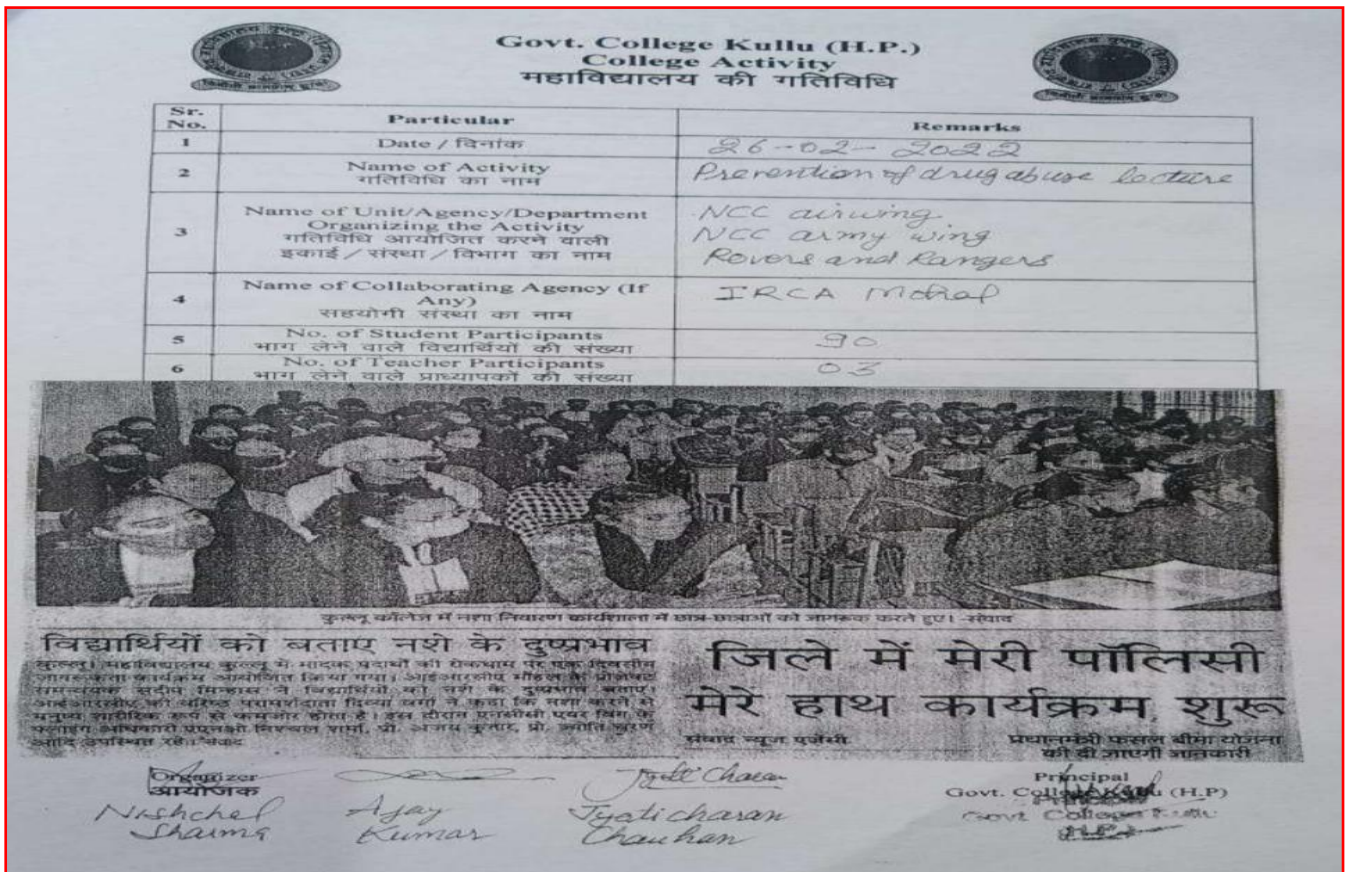 Govt. College Kullu (H.P.)
College Activity
महाविद्यालय की गतिविधि
Sr. No. Particular Remarks
1 Date / दिनांक 26-02-2022
2 Name of Activity Prevention of drug abuse lecture
गतिविधि का नाम
3 Name of Unit/Agency/Department NCC airwing
Organizing the Activity NCC army wing
गतिविधि आयोजित करने वाली Rovers and Rangers
इकाई / संस्था / विभाग का नाम
4 Name of Collaborating Agency (If Any) IRCA Mohal
सहयोगी संस्था का नाम
5 No. of Student Participants 90
भाग लेने वाले विद्यार्थियों की संख्या
6 No. of Teacher Participants 03
भाग लेने वाले प्राध्यापकों की संख्या
कुल्लू कॉलेज में नशा निवारण कार्यशाला में छात्र-छात्राओं को जागरूक करते हुए। -संवाद
विद्यार्थियों को बताए नशे के दुष्प्रभाव
कुल्लू। महाविद्यालय कुल्लू में मादक पदार्थों की रोकथाम पर एक दिवसीय
जागरूकता कार्यक्रम आयोजित किया गया। आईआरसीए मौहल के प्रोजेक्ट
समन्वयक सदीप मिन्हास ने विद्यार्थियों को नशे के दुष्प्रभाव बताए।
आईआरसीए की वरिष्ठ परामर्शदाता दिव्या ने कहा कि नशा करने से
मनुष्य शारीरिक रूप से कमजोर होता है। इस दौरान एनसीसी एयर विंग के
फ्लाइंग अधिकारी एएनओ निश्चल शर्मा, प्रो. अजय कुमार, प्रो. ज्योति चरण
आदि उपस्थित रहे। संवाद
जिले में मेरी पॉलिसी
मेरे हाथ कार्यक्रम शुरू
संवाद न्यूज एजेंसी
प्रधानमंत्री फसल बीमा योजना
की दी जाएगी जानकारी
Organizer
आयोजक
Jyoti Charan
Nishchel Sharma
Ajay Kumar
Jyoti charan Chauhan
Principal
Govt. College Kullu (H.P)
Govt College Kullu